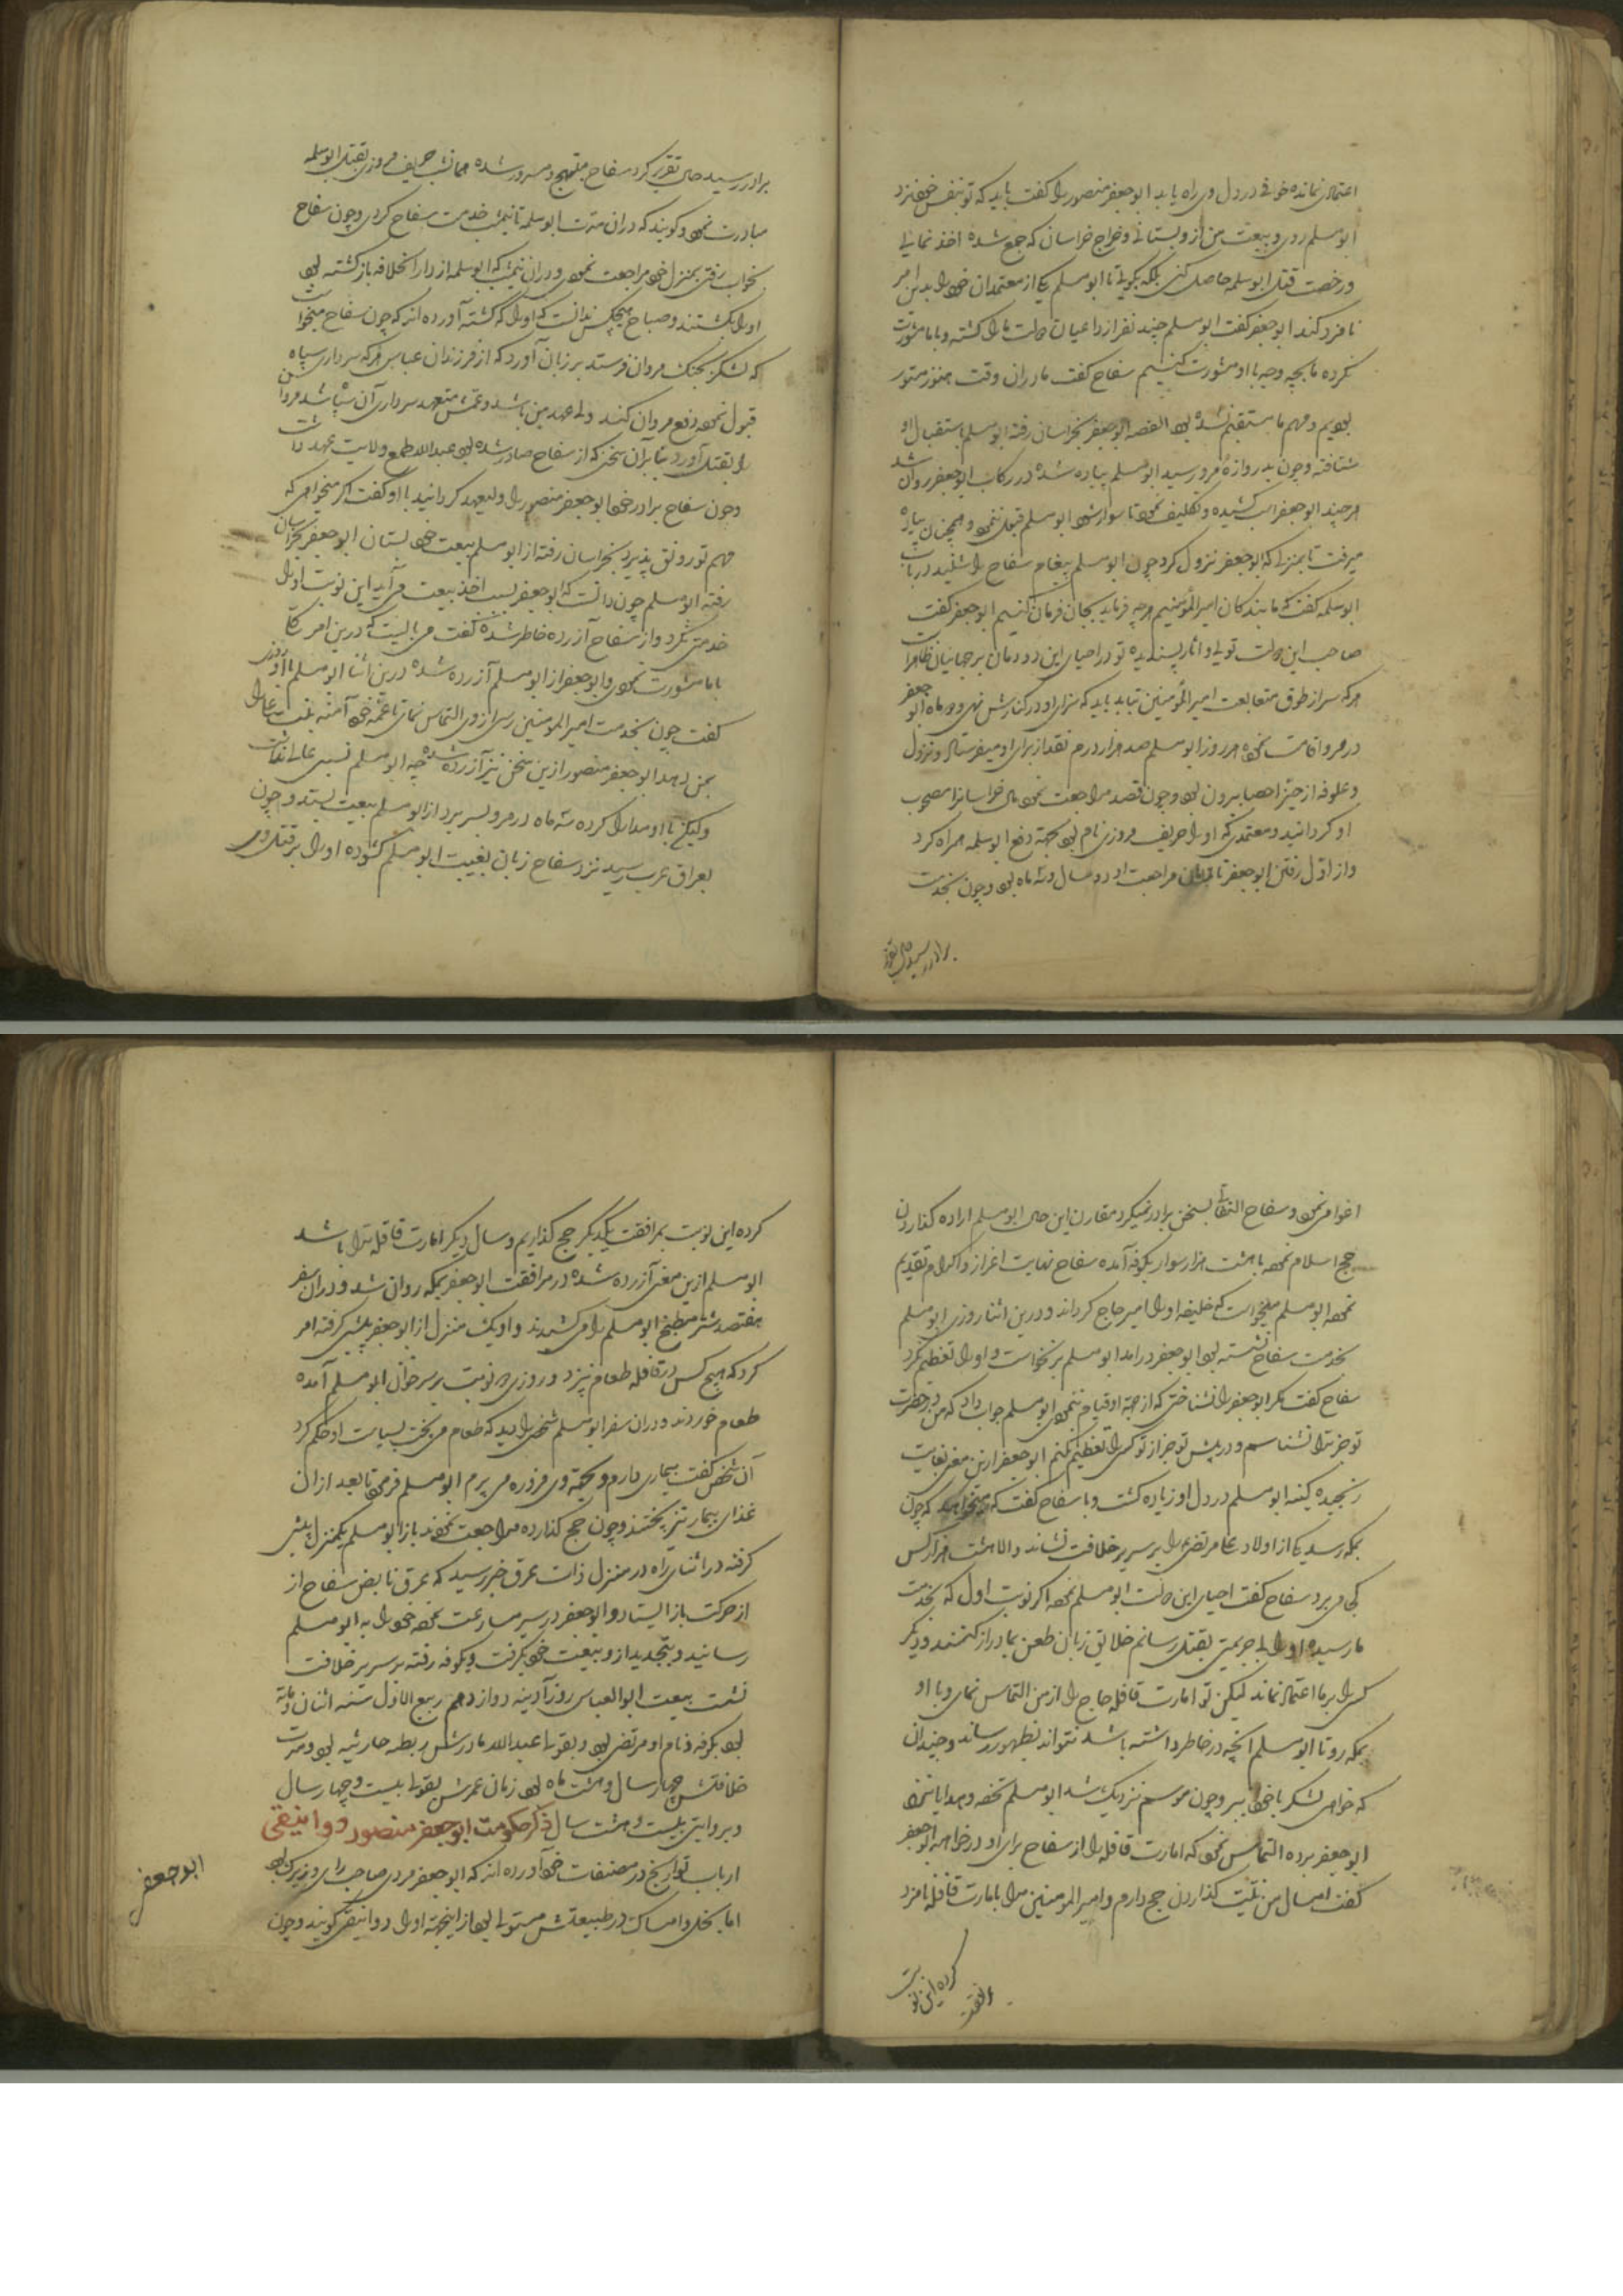 اعتمادی نمانده خوفی در دل وی راه یابد ابو جعفر منصور را گفت باید که تو بنفس خود نزد
ابو مسلم روی و بیعت من از و بستانی و خراج خراسان که جمع شده اخذ نمایی
و رخصت قتل ابو سلمه حاصل کنی بلکه بگویی تا ابو مسلم یکی از معتمدان خود را بدین امر
نامزد کند ابو جعفر گفت ابو مسلم چند نفر از داعیان دولت ما را کشته و با ما مشورت
نکرده ما بچه وجه با او مشورت کنیم سفاح گفت ما دران وقت هنوز مستور
بودیم و مهم ما مستقیم نشده بود القصه ابو جعفر بخراسان رفته ابو مسلم باستقبال او
شتافته و چون بدروازه مرو رسید ابو مسلم پیاده شده در رکاب ابو جعفر روان شد
هر چند ابو جعفر اسب کشیده و تکلیف نمود تا سوار شود ابو مسلم قبول ننمود و همچنان پیاده
میرفت تا بمنزلی که ابو جعفر نزول کرد و چون ابو مسلم پیغام سفاح را شنید در باب
ابو سلمه گفت که ما بندگان امیر المؤمنیم هر چه فرماید بجان فرمان کنیم ابو جعفر گفت
صاحب این دولت تویی و آثار پسندیده تو در احیای این دودمان بر جهانیان ظاهر است
هر که سر از طوق متابعت امیر المؤمنین بتابد باید که سزای او در کنارش نهی و دو ماه ابو جعفر
در مرو اقامت نموده هر روز ابو مسلم صد هزار درم نقد از برای او میفرستاد و نزول
و علوفه از حیز احصا بیرون بود و چون قصد مراجعت نمود مال خراسان را مصحوب
او گردانید و معتمدی که او را حریف مروزی نام بود بجهة دفع ابو سلمه همراه کرد
و از اول رفتن ابو جعفر تا زمان مراجعت او دو سال و سه ماه بود و چون بخدمت
برادر رسید حال تقریر
برادر رسید حال تقریر کرد سفاح مبتهج و مسرور شده همان شب حریف مروزی بقتل ابو سلمه
مبادرت نمود و گویند که دران مدت ابو سلمه تا نیمشب خدمت سفاح کردی و چون سفاح
بخواب رفتی بمنزل خود مراجعت نمودی و دران نیمشب که ابو سلمه از دار الخلافه بازگشته بود
او را بکشتند و صباح هیچکس ندانست که او را که کشته آورده اند که چون سفاح میخواست
که لشکر بجنگ مروان فرستد بر زبان آورد که از فرزندان عباس هر که سرداری سپاه
قبول نموده دفع مروان کند ولی عهد من باشد و عمش متعهد سرداری آن سپاه شد مروان
را بقتل آورد و بنابر آن سخن که از سفاح صادر شده بود عبد الله طمع ولایت عهد داشت
و چون سفاح برادر خود ابو جعفر منصور را ولیعهد گردانید با او گفت اگر میخواهی که
مهم تو رونق پذیرد بخراسان رفته از ابو مسلم بیعت خود بستان ابو جعفر بخراسان
رفته ابو مسلم چون دانست که ابو جعفر بسبب اخذ بیعت می آید این نوبت او را
خدمتی نکرد و از سفاح آزرده خاطر شده گفت می بایست که درین امر
با ما مشورت نمودی و ابو جعفر از ابو مسلم آزرده شده درین اثنا ابو مسلم با او روزی
گفت چون بخدمت امیر المومنین رسی از وی التماس نمای تا عمه خود آمنه بنت علی را
بمن دهد ابو جعفر منصور ازین سخن نیز آزرده شده چه ابو مسلم نسبی عالی نداشت
و لیکن با او مدارا کرده سه ماه در مرو بسر برد از ابو مسلم بیعت بستد و چون
بعراق عرب رسید نزد سفاح زبان بغیبت ابو مسلم گشوده او را بر قتل وی
اغوا می نمود و سفاح التفاتی بسخن برادر نمیکرد مقارن این حال ابو مسلم اراده گذاردن
حج اسلام نموده با هشت هزار سوار بکوفه آمده سفاح نهایت اعزاز و اکرام تقدیم
نموده ابو مسلم میخواست که خلیفه او را امیر حاج گرداند و درین اثنا روزی ابو مسلم
بخدمت سفاح نشسته بود ابو جعفر درامد ابو مسلم بر نخواست و او را تعظیم نکرد
سفاح گفت مگر ابو جعفر را نشناختی که از جهة او قیام ننمودی ابو مسلم جواب داد که من در حضرت
تو جز ترا نشناسم و در پیش تو جز از تو کسی را تعظیم نکنم ابو جعفر ازین معنی بغایت
رنجیده کینه ابو مسلم در دل او زیاده گشت و با سفاح گفت که میخواهد که چون
بمکه رسد یکی از اولاد علی مرتضی را بر سریر خلافت نشاند و الا هشت هزار کس
کجا می برد سفاح گفت احیای این دولت ابو مسلم نموده اگر نوبت اول که بخدمت
ما رسیده او را بی جریمتی بقتل رسانم خلایق زبان طعن بما دراز کنند و دیگر
کسی را بر ما اعتماد نماند لیکن تو امارت قافله حاج را از من التماس نمای و با او
بمکه رو تا ابو مسلم آنچه در خاطر داشته باشد نتواند بظهور رساند و چندان
که خواهی لشکر با خود ببر و چون موسم نزدیک شد ابو مسلم تحفه و هدایا بنزد
ابو جعفر برده التماس نمود که امارت قافله را از سفاح برای او درخواهد ابو جعفر
گفت امسال من نیت گذاردن حج دارم و امیر المومنین مرا بامارت قافله نامزد
کرده این نوبت بمرافقت
کرده این نوبت بمرافقت یکدیگر حج گذاریم و سال دیگر امارت قافله ترا باشد
ابو مسلم ازین معنی آزرده شده در مرافقت ابو جعفر بمکه روان شد و دران سفر
هفتصد شتر مطبخ ابو مسلم را می کشیدند و او یک منزل از ابو جعفر پیشی گرفته امر
کرد که هیچ کس در قافله طعام نپزد و روزی دو نوبت بر سر خوان ابو مسلم آمده
طعام خوردند و دران سفر ابو مسلم شخصی را دید که طعام می پخت بسیاست او حکم کرد
آن شخص گفت بیماری دارم و بجهة وی مزوره می پزم ابو مسلم فرمود تا بعد ازان
غذای بیمار نیز پختند و چون حج گذارده مراجعت نمودند باز ابو مسلم یکمنزل پیشی
گرفته در اثنای راه در منزل ذات عرق خبر رسید که عرق نابض سفاح از
از حرکت باز ایستاد و ابو جعفر در سیر مسارعت نموده خود را به ابو مسلم
رسانید و بتجدید از و بیعت خود بگرفت و بکوفه رفته بر سریر خلافت
نشست بیعت ابو العباس روز آدینه دوازدهم ربیع الاول سنه اثنان و مایة
بود بکوفه و نام او مرتضی بود و بقولی عبد الله مادرش ریطه حارثیه بود و مدت
خلافتش چهار سال و هشت ماه بود زمان عمرش بقولی بیست و چهار سال
و بروایتی بیست و هشت سال ذکر حکومت ابو جعفر منصور دوانیقی
ارباب تواریخ در مصنفات خود آورده اند که ابو جعفر مردی صاحب رای و زیرک بود
اما بخل و امساک در طبیعتش مستولی بود ازینجهة او را دوانیقی گویند و چون
ابو جعفر